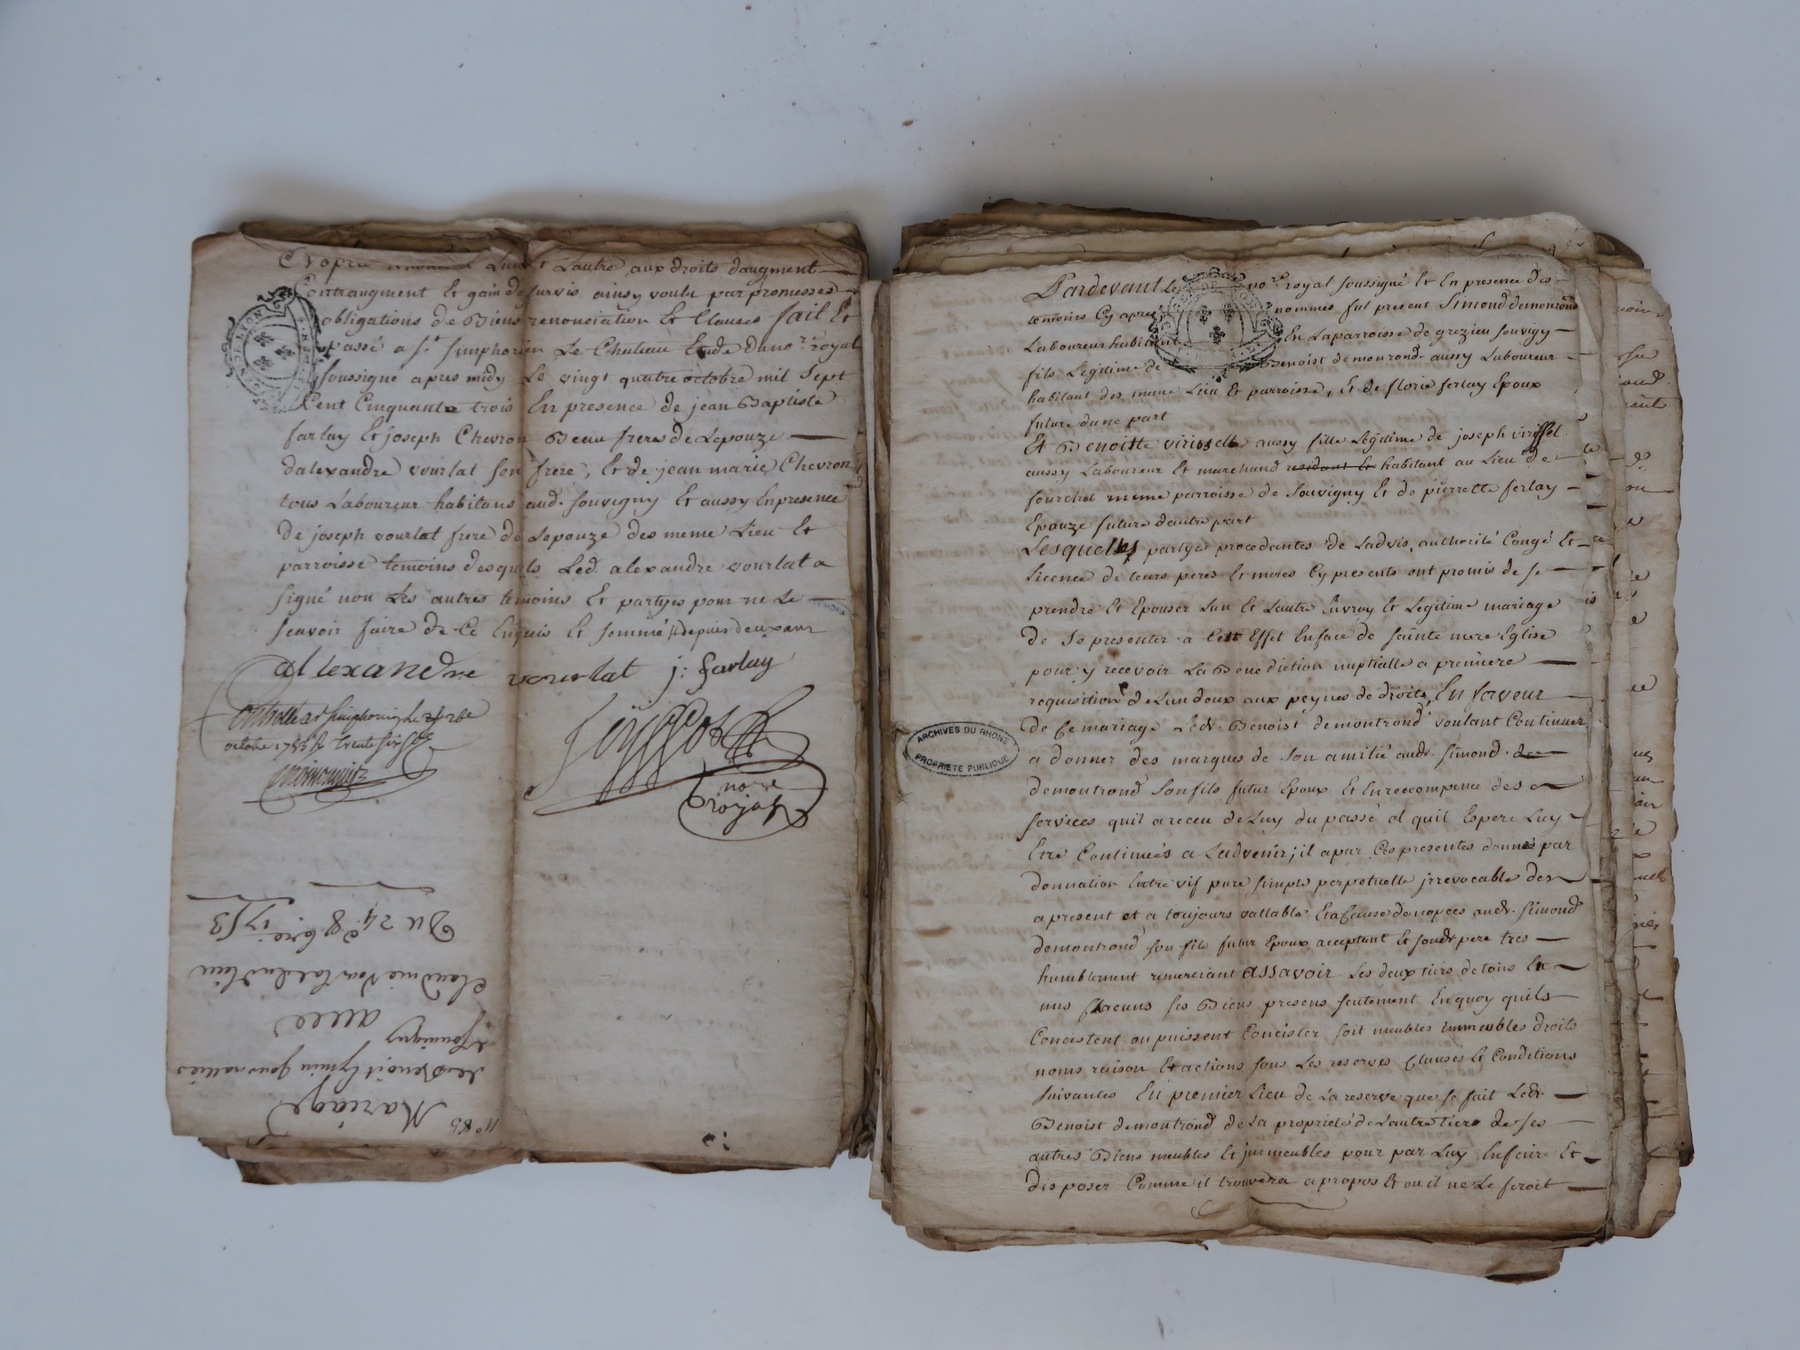 Lautre aux droits daugment
Contraugment Et gain de survis ainsy voulu par promesses
obligations de Biens renonciation Et Clauses fait Et
passé a st. simphorien Le Chateau Etude du nore. royal
soussigné apres midy Le vingt quatre octobre mil sept
Cent Cinquante trois En presence de jean Baptiste
farlay Et joseph Chevron Beau frere de Lepouze
dalexandre vourlat son frere, Et de jean marie Chevron
tous Laboureur habitans aud. souvigny Et aussy En presence
de joseph vourlat frere de Lepouze des meme Lieu Et
parroisse temoins desquels Led. alexandre vourlat a
signé non Les autres temoins Et partyes pour ne Le
scavoir faire de Ce Enquis Et sommé depuis deux ans
alexandre vourlat j: farlay
octobre 1753
nore
royal
Du 24e. 8bre. 1753
avec
souvigny
Mariage
no 85
ARCHIVES DU RHONE
PROPRIETE PUBLIQUE
Pardevant Le nore. royal soussigné Et En presence des
temoins Cy apres nommés fut present Simond demontrond
Laboureur habitant En Laparroisse de grezieu souvigy
fils Legitime de Benoist demontrond aussy Laboureur
habitant des meme Lieu Et parroisse, Et de florie ferlay Epoux
futur dune part
Et Benoitte viricelle aussy fille Legitime de joseph viricel
aussy Laboureur Et marchand residant Et habitant au Lieu de
fourchet meme parroisse de souvigny Et de pierrette ferlay
Epouze future dautre part
Lesquelles partyes procedantes de Ladvis, authorité Congé Et
Licence de leurs peres Et meres Cy presents ont promis de se
prendre Et Epouser Lun Et Lautre En vray Et Legitime mariage
de se presenter a Cett Effet En face de sainte mere Eglise
pour y recevoir La Benediction nuptialle a premiere
requisition de Lun deux aux peynes de droits, En faveur
de Ce mariage Ledt. Benoist demontrond voulant Continuer
a donner des marques de son amitié audt. simond de
demontrond son fils futur Epoux Et En recompense des
services quil a receu de Luy du passé et quil Espere Luy
Etre Continués a Ladvenir; il a par Ces presentes donné par
donnation Entre vif pure simple perpetuelle jrrevocable des
a present et a toujours vallable Et a Cause de nopces audt. simond
demontrond son fils futur Epoux acceptant Et sondt. pere tres
humblement remerciant assavoir Les deux tiers de tous Et
uns Chacuns ses Biens presens seulement En quoy quils
Concistent ou puissent Concister soit meubles immeubles droits
noms raison Et actions sous Les reserves Clauses Et Conditions
suivantes En premier Lieu de La reserve que se fait Ledt.
Benoist demontrond de La proprieté de Lautre tiers de ses
autres Biens meubles Et jmmeubles pour par Luy En feire Et
disposer Comme il trouvera apropos Et ou il ne Le feroit